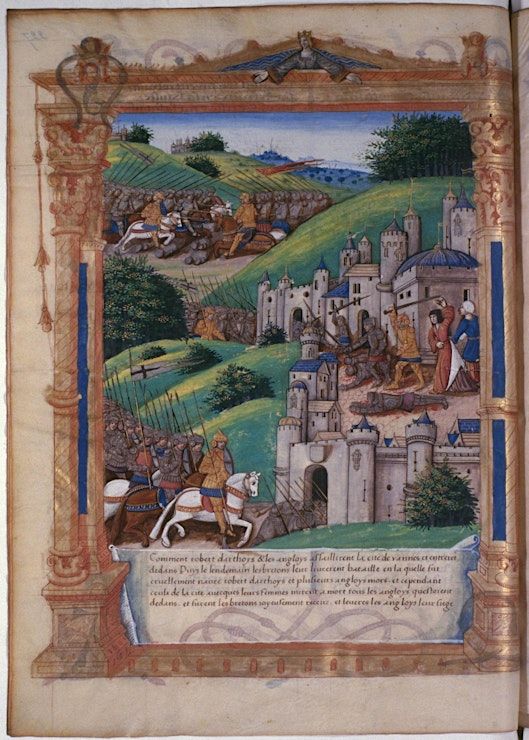 Comment robert darthoys & les angloys assaillirent la cite de vannes et entreret
dedans Puys le lendemain les bretons leur liuerent bataille en la quelle fut
cruellement naure robert darthoys et plusieurs angloys mors . et cependant
ceulx de la cite auecques leurs femmes mirent a mort tous les angloys questoient
dedans . et furent les bretons ioyeusement receuz . et leueret les angloys leur siege